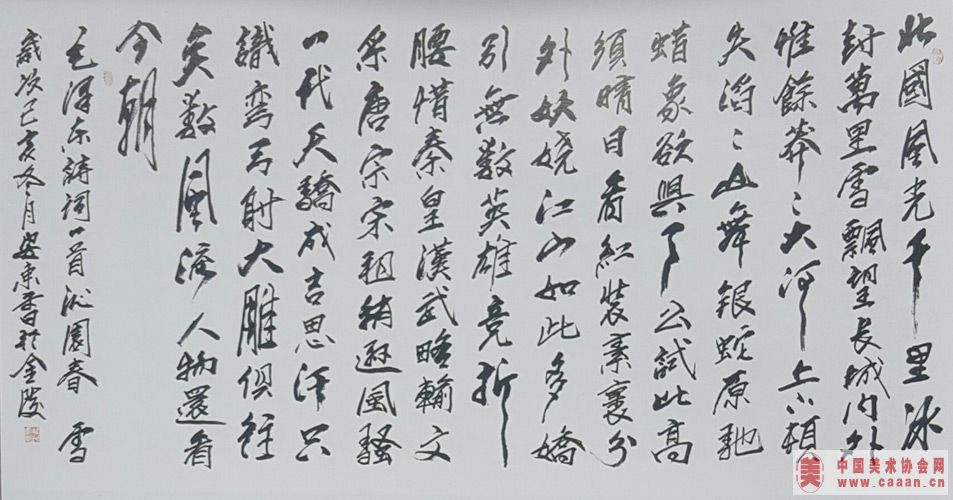 北國風光千里冰
封萬里雪飄望長城内外
惟餘莽〻大河上下頓
失滔〻山舞銀蛇原馳
蜡象欲與天公試比高
須晴日看紅裝素裹分
外妖嬈江山如此多嬌
引無数英雄竞折
腰惜秦皇漢武略輸文
采唐宗宋祖稍遜風騷
一代天驕成吉思汗只
識弯弓射大雕俱往
矣数風流人物還看
今朝
毛澤东詩詞一首沁園春 雪
歲次己亥冬月 於金陵
美 中国美术协会网
www.caaan.cn